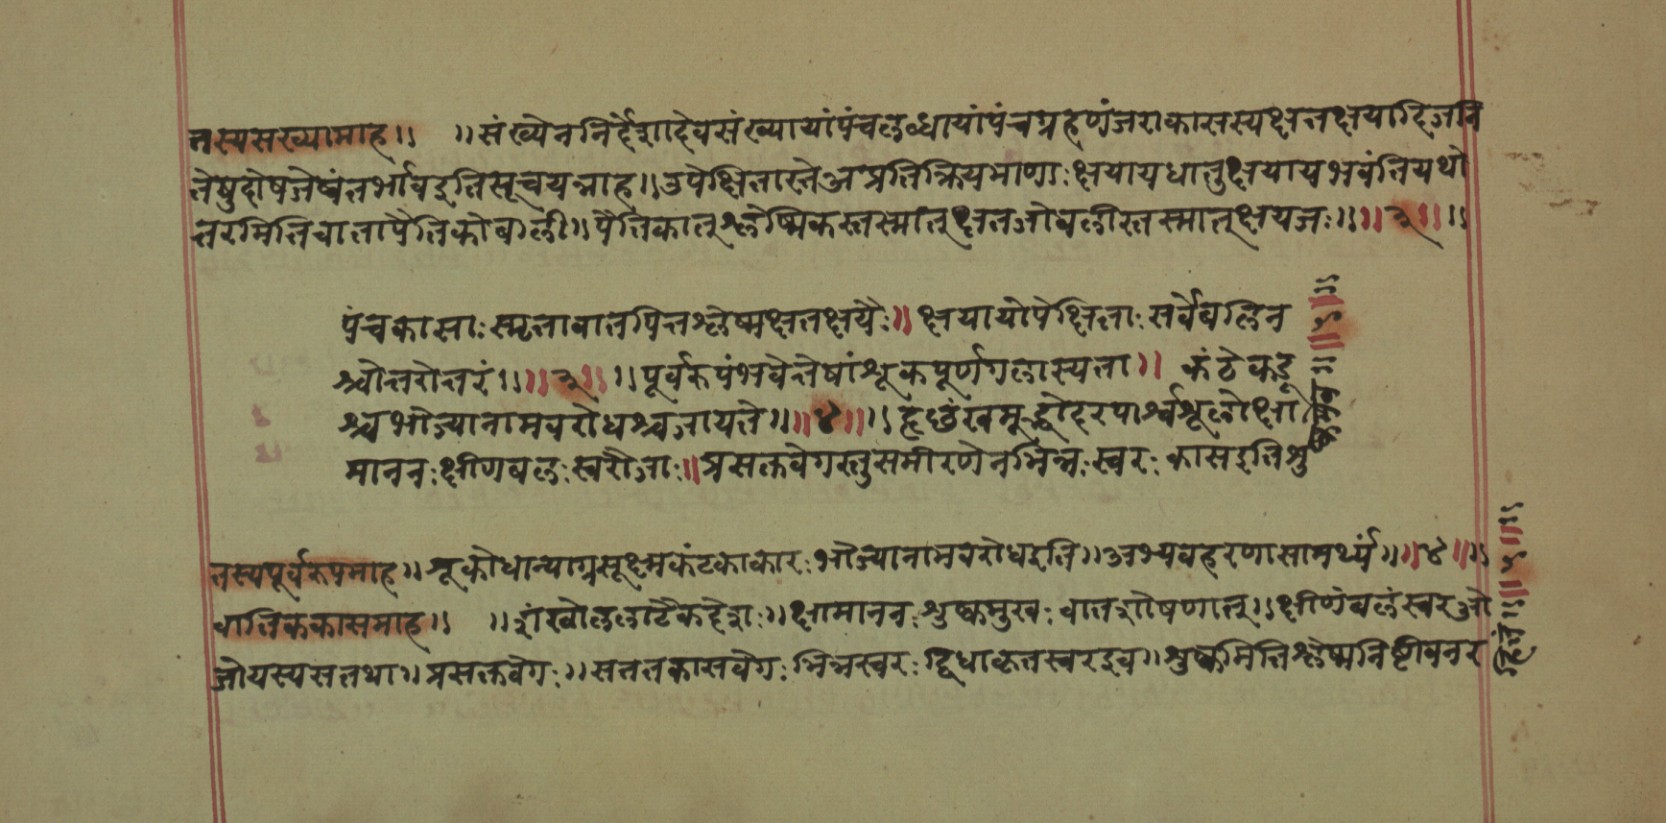 तस्यसख्यामाह॥ ॥संख्येननिर्द्देशादेवसंख्यायांपंचलब्धायांपंचग्रहणंजराकासस्यक्षतक्षयादिजनि
तेषुदोषजेष्वंतर्भावइतिसूचयन्नाह॥उपेक्षितास्तेअप्रतिक्रियमाणाःक्षयायधातुक्षयायभवंतियथो
त्तरमितिवातात्पैत्तिकोबाली॥पैत्तिकात्श्लेष्मिकस्तस्मात्क्षतजोबलीस्तस्मात्क्षयजः॥॥३॥॥
पंचकासाःस्मृतावातपित्तश्लेष्मक्षतक्षयैः॥क्षयायोपेक्षिताःसर्वेबलिन
श्चोत्तरोत्तरं॥॥३॥॥पूर्वरूपंभवेत्तेषांशूकपूर्णगलास्यता॥ कंठेकडू
श्चभोज्यानामवरोधश्चजायते॥॥४॥॥हृछंखमूर्द्धोदरपार्श्वशूलीक्षा
माननःक्षीणबलःस्वरौजाः॥प्रसक्तवेगस्तुसमीरणेनभिन्नःस्वरःकासइतिशु
तस्यपूर्वरूपमाह॥शूकोधान्याग्रसूक्ष्मकंटकाकारःभोज्यानामवरोधइति॥अभ्यवहरणासामर्थ्यं॥॥४॥॥
वातिककासमाह॥ ॥शंखोललाटैकदेशः॥क्षामाननःशुष्कमुखःवातशोषणात्॥क्षीणंबलंस्वरओ
जोयस्यसतथा॥प्रसक्तवेगः॥सततकासवेगःभिन्नस्वरःद्विधाकृतस्वरइव॥शुष्कमितिश्लेष्मनिष्टीवनर